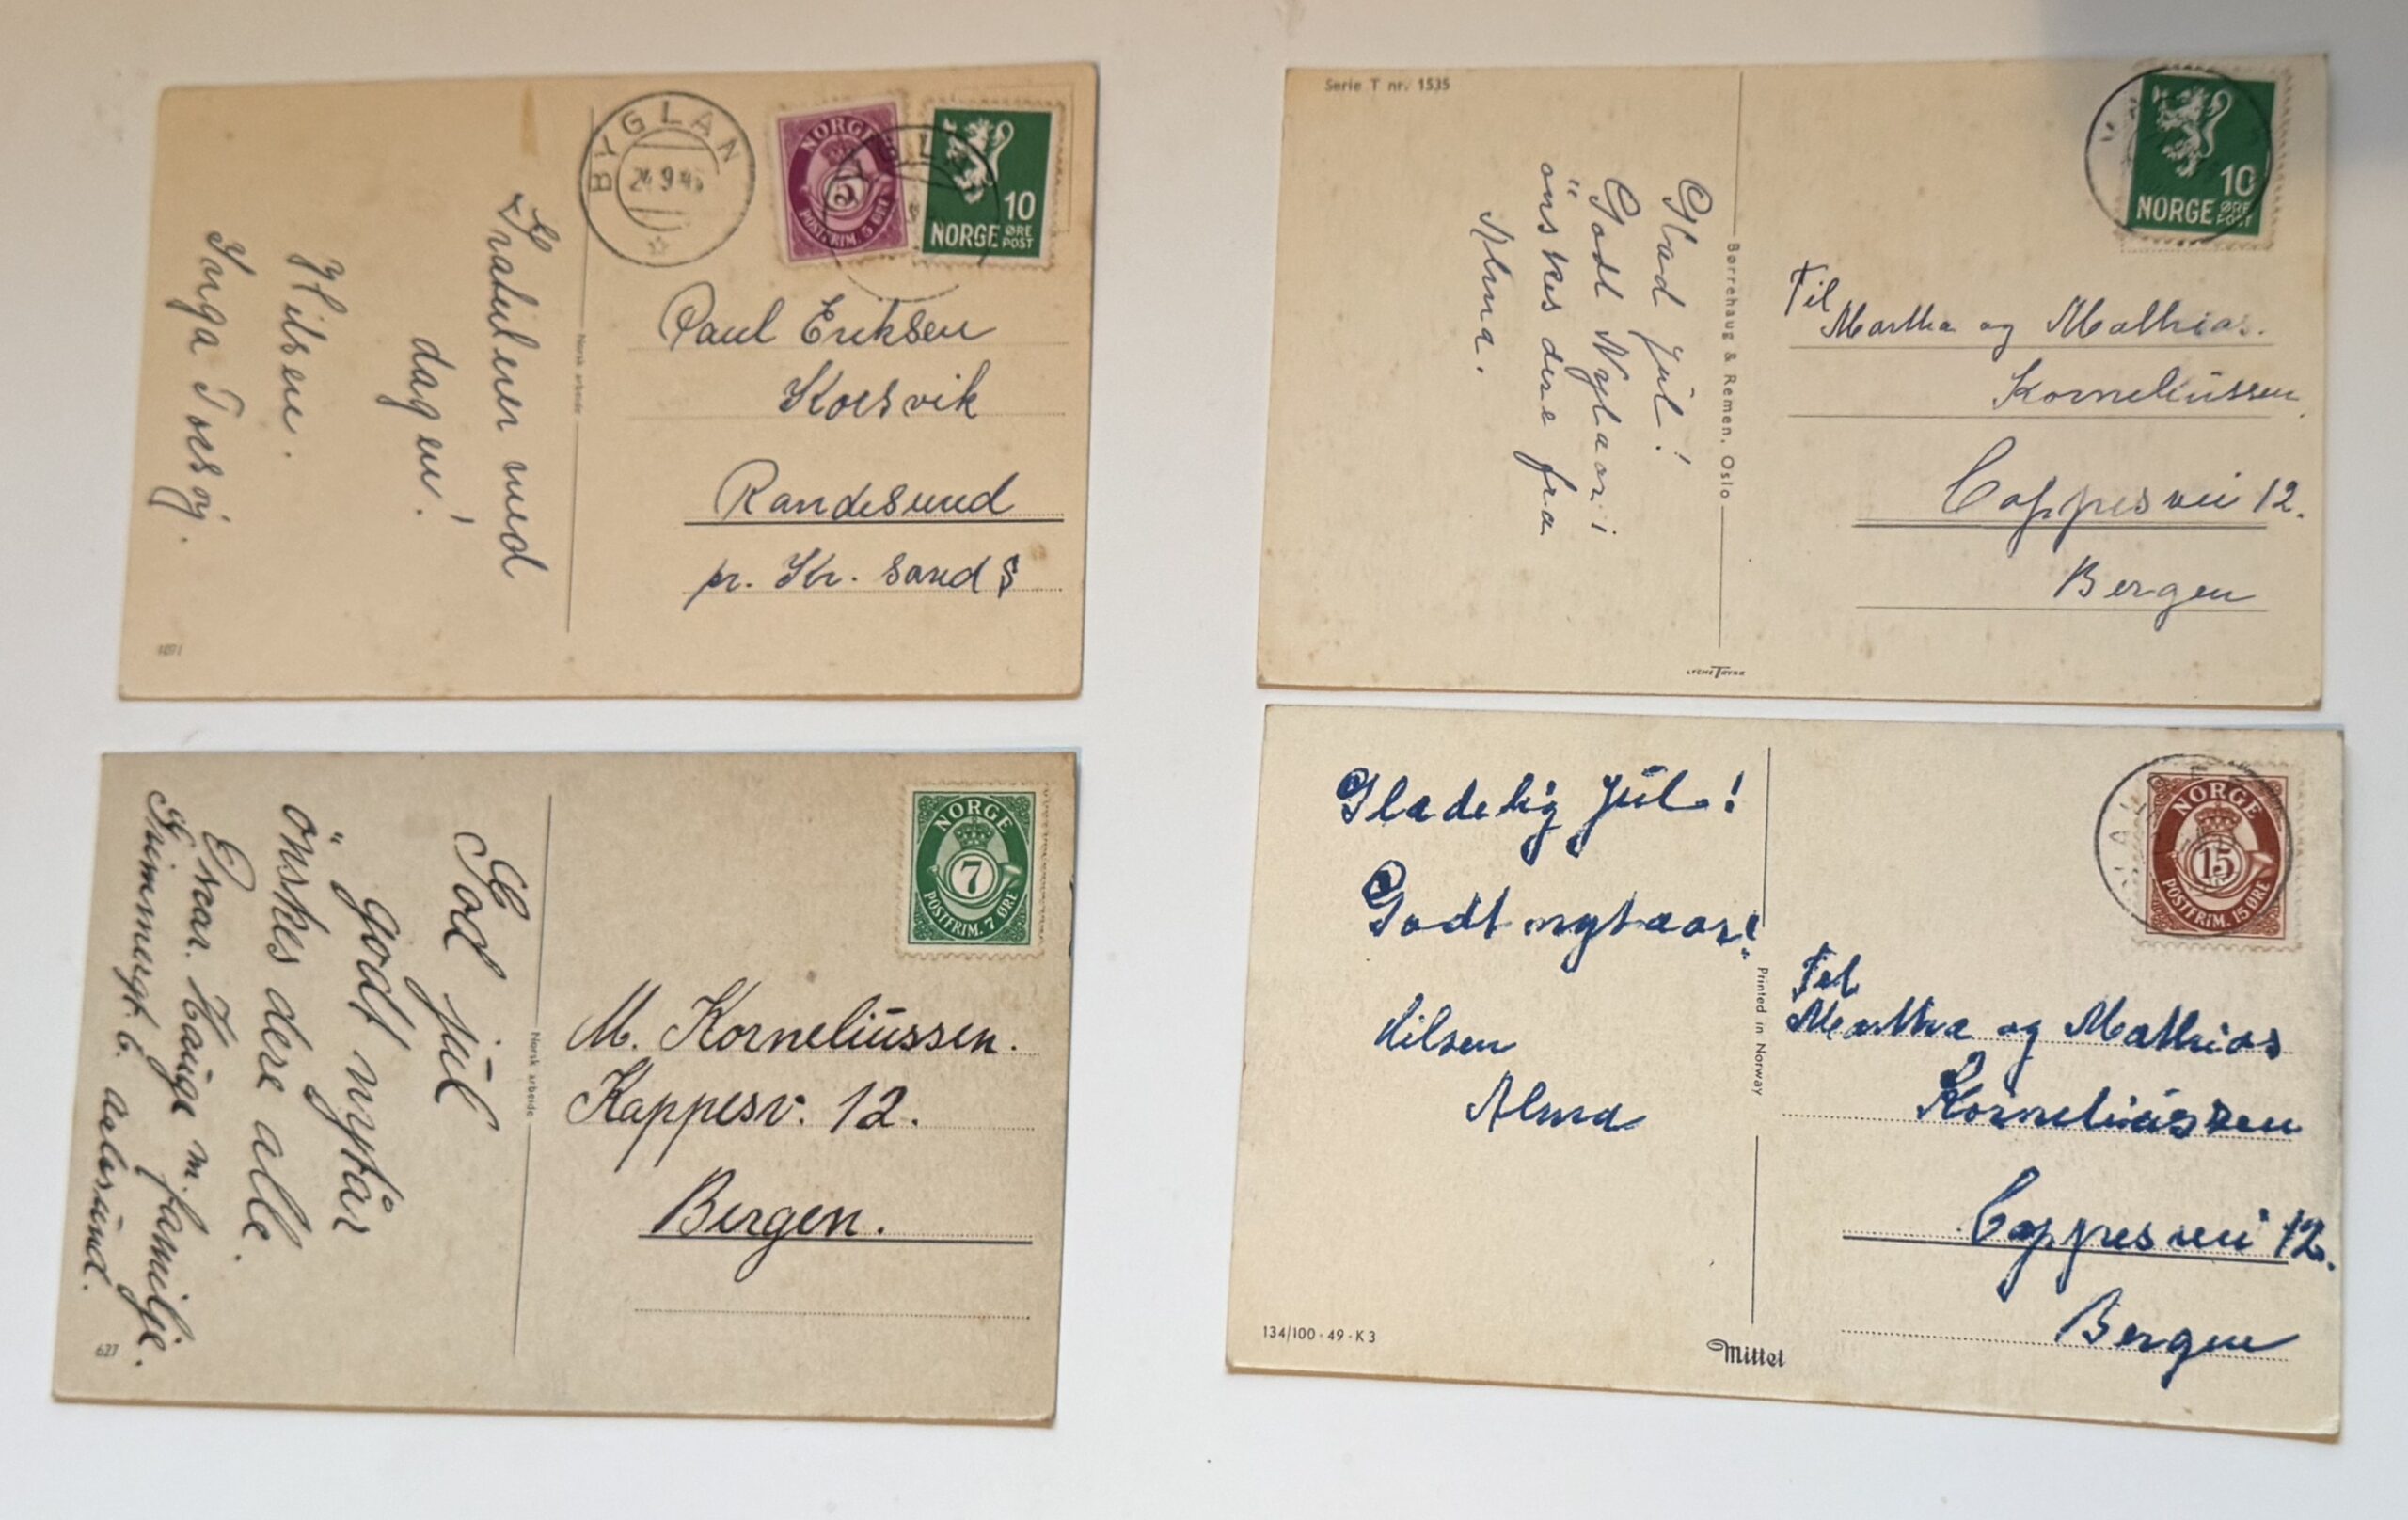 BYGLAN
24 9 4
NORGE
5
POSTFRIM. 5 ØRE
10
NORGE ØRE POST
Gratulerer med
dagen!
Hilsen.
Inga Torsøy.
Norsk arbeide
Paul Eriksen
Korsvik
Randesund
pr. Kr. sand S
Serie T nr. 1535
10
NORGE ØRE POST
Glad jul!
Godt Nytaar i
önskes dere fra
Alma.
Børrehaug & Remen, Oslo
Til
Martha og Mathias.
Korneliussen
Coppesvei 12.
Bergen
NORGE
7
POSTFRIM. 7 ØRE
God jul
godt nytår
önskes dere alle.
Oscar. Hauge m. familje.
6. Aalesund.
Norsk arbeide
M. Korneliussen.
Kappesv. 12.
Bergen.
627
NORGE
15
POSTFRIM. 15 ØRE
Gladelig Jul!
Godt nytaar!
Hilsen
Alma
Printed in Norway
Til
Martha og Mathias
Korneliussen
Coppesvei 12.
Bergen
134/100-49-K3
Mittet